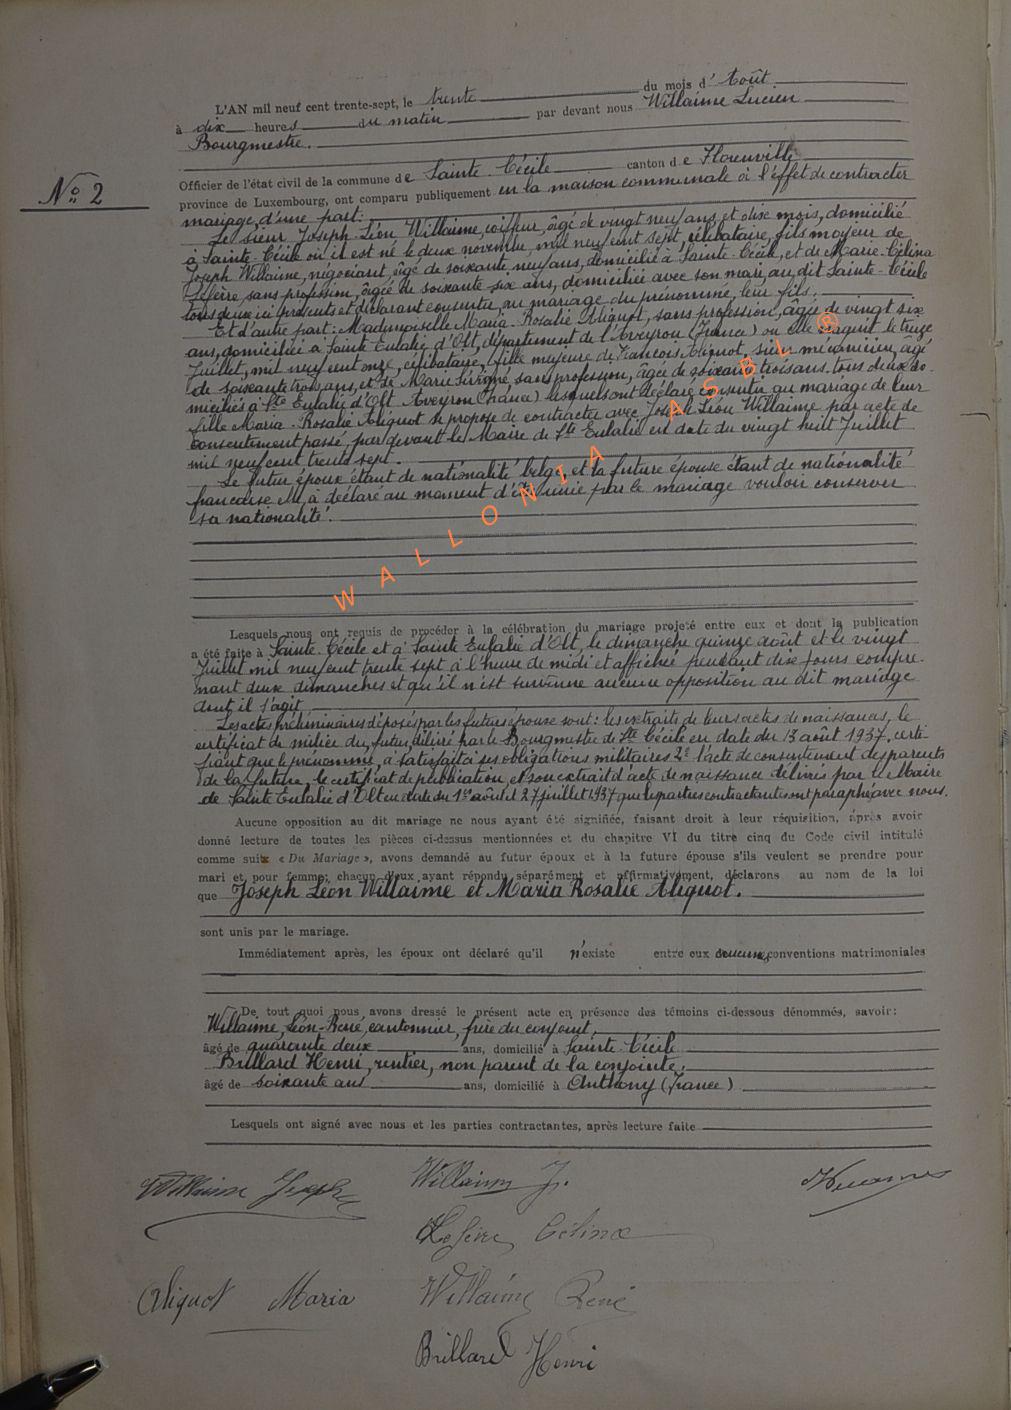 L'AN mil neuf cent trente-sept, le trente du mois d'Août
à dix heures du matin par devant nous Willaime Lucien
Bourgmestre.
Officier de l'état civil de la commune de Sainte-Cécile canton de Florenville
province de Luxembourg, ont comparu publiquement en la maison communale à l'effet de contracter
N° 2
mariage, d'une part:
Le sieur Joseph Léon Willaime, coiffeur, âgé de vingt neuf ans, et dix mois, domicilié
à Sainte-Cécile où il est né le deux novembre, mil neuf cent sept, célibataire, fils majeur de
Joseph Willaime, négociant, âgé de soixante neuf ans, domicilié à Sainte-Cécile, et de Marie-Célina
Lefèvre sans profession, âgée de soixante six ans, domiciliée avec son mari, au dit Sainte-Cécile
tous deux ici présents et déclarant consentir au mariage du prénommé, leur fils.
Et d'autre part: Mademoiselle Maria-Rosalie Aliquot, sans profession, âgée de vingt six
ans, domiciliée à Sainte Eulalie d'Olt, département de l'Aveyron (France) où elle naquit le treize
Juillet, mil neuf cent onze, célibataire, fille majeure de François Aliquot, mécanicien, âgé
de soixante trois ans, et de Marie sans profession, âgée de soixante trois ans, tous deux do-
miciliés à Ste Eulalie d'Olt Aveyron (France) lesquels ont déclaré consentir au mariage de leur
fille Maria-Rosalie Aliquot se propose de contracter avec Joseph Léon Willaime par acte de
consentement passé, par devant le Maire de Ste Eulalie en date du vingt huit Juillet
mil neuf cent trente sept.
Le futur époux étant de nationalité belge, et la future épouse étant de nationalité
française elle, à déclaré au moment d'être unie par le mariage vouloir conserver
sa nationalité.
WALLONIA ASBL ®
Lesquels nous ont requis de procéder à la célébration du mariage projeté entre eux et dont la publication
a été faite à Sainte-Cécile et à Sainte Eulalie d'Olt, le dimanche quinze août et le vingt
Juillet mil neuf cent trente sept à l'heure de midi et afficher pendant dix jours compre-
nant deux dimanches et qu'il n'est survenue aucune opposition au dit mariage
dont il s'agit
Les actes préliminaires déposés par les futurs épouse sont: les extraits de leurs actes de naissances, le
certificat de milice du futur, délivré par le Bourgmestre de Ste Cécile en date du 13 août 1937, certi-
fiant que le prénommé, a satisfait à ses obligations militaires 2° l'acte de consentement des parents
de la future, le certificat de publication, et son extrait d'acte de naissance délivrés par le Maire
de Sainte Eulalie d'Olt en date du 1er août et 27 juillet 1937 que les parties contractantes ont paraphé avec nous.
Aucune opposition au dit mariage ne nous ayant été signifiée, faisant droit à leur réquisition, après avoir
donné lecture de toutes les pièces ci-dessus mentionnées et du chapitre VI du titre cinq du Code civil intitulé
comme suit « Du Mariage », avons demandé au futur époux et à la future épouse s'ils veulent se prendre pour
mari et pour femme; chacun d'eux ayant répondu séparément et affirmativement, déclarons au nom de la loi
que Joseph Léon Willaime et Maria Rosalie Aliquot.
sont unis par le mariage.
Immédiatement après, les époux ont déclaré qu'il n'existe entre eux aucunes conventions matrimoniales
De tout quoi nous avons dressé le présent acte en présence des témoins ci-dessous dénommés, savoir:
Willaime, Léon-René, cantonnier, frère du conjoint,
âgé de quarante deux ans, domicilié à Sainte-Cécile
Brillard Henri, rentier, non parent de la conjointe,
âgé de soixante ans ans, domicilié à Anthony (France)
Lesquels ont signé avec nous et les parties contractantes, après lecture faite
Willaime Joseph Willaime J.
Lefèvre Célina
Aliquot Maria Willaime René
Brillard Henri